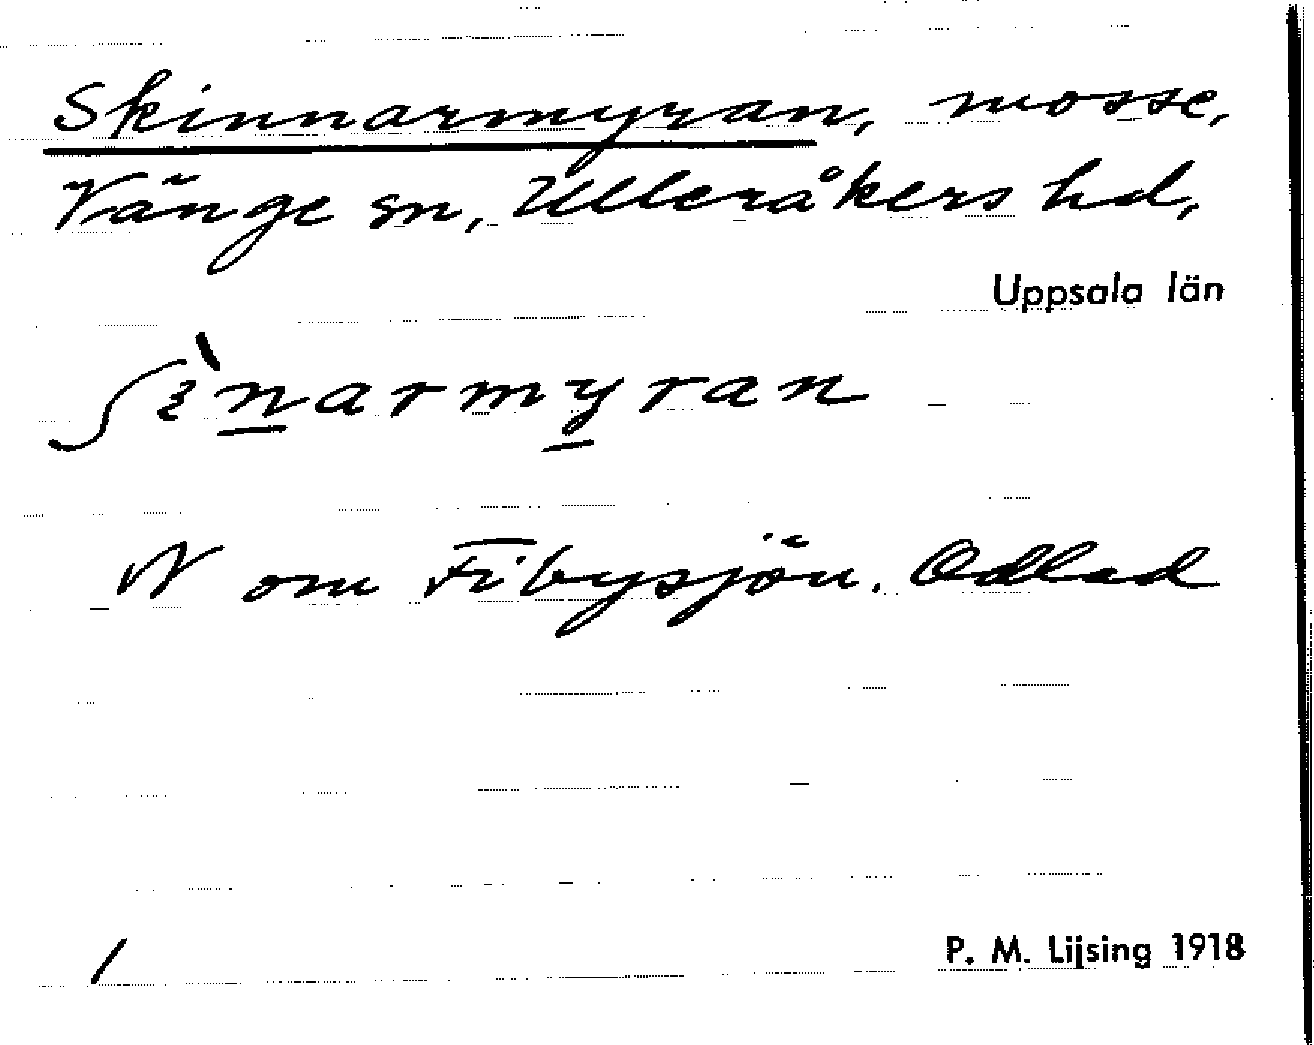 Skinnarmyran, mosse,
Vänge sn, Ulleråkers hd,
Uppsala län
ʃɛ̀n̲army̲ran
N om Fibysjön. Odlad
/
P. M. Lijsing 1918